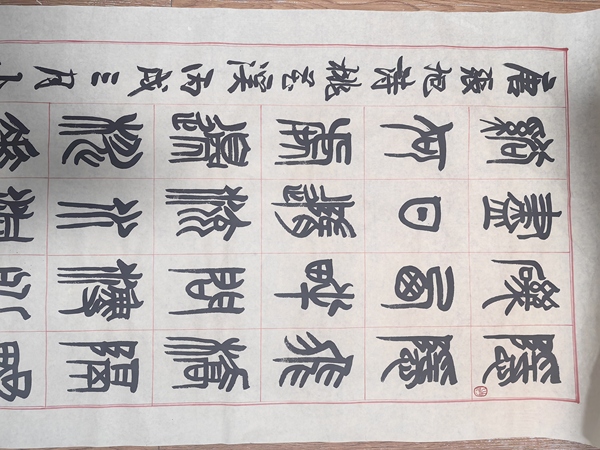 隱隱飛橋隔野
磯西畔問漁船
盡日隨流水洞
谿何處邊
唐張旭詩桃花溪丙戌三月